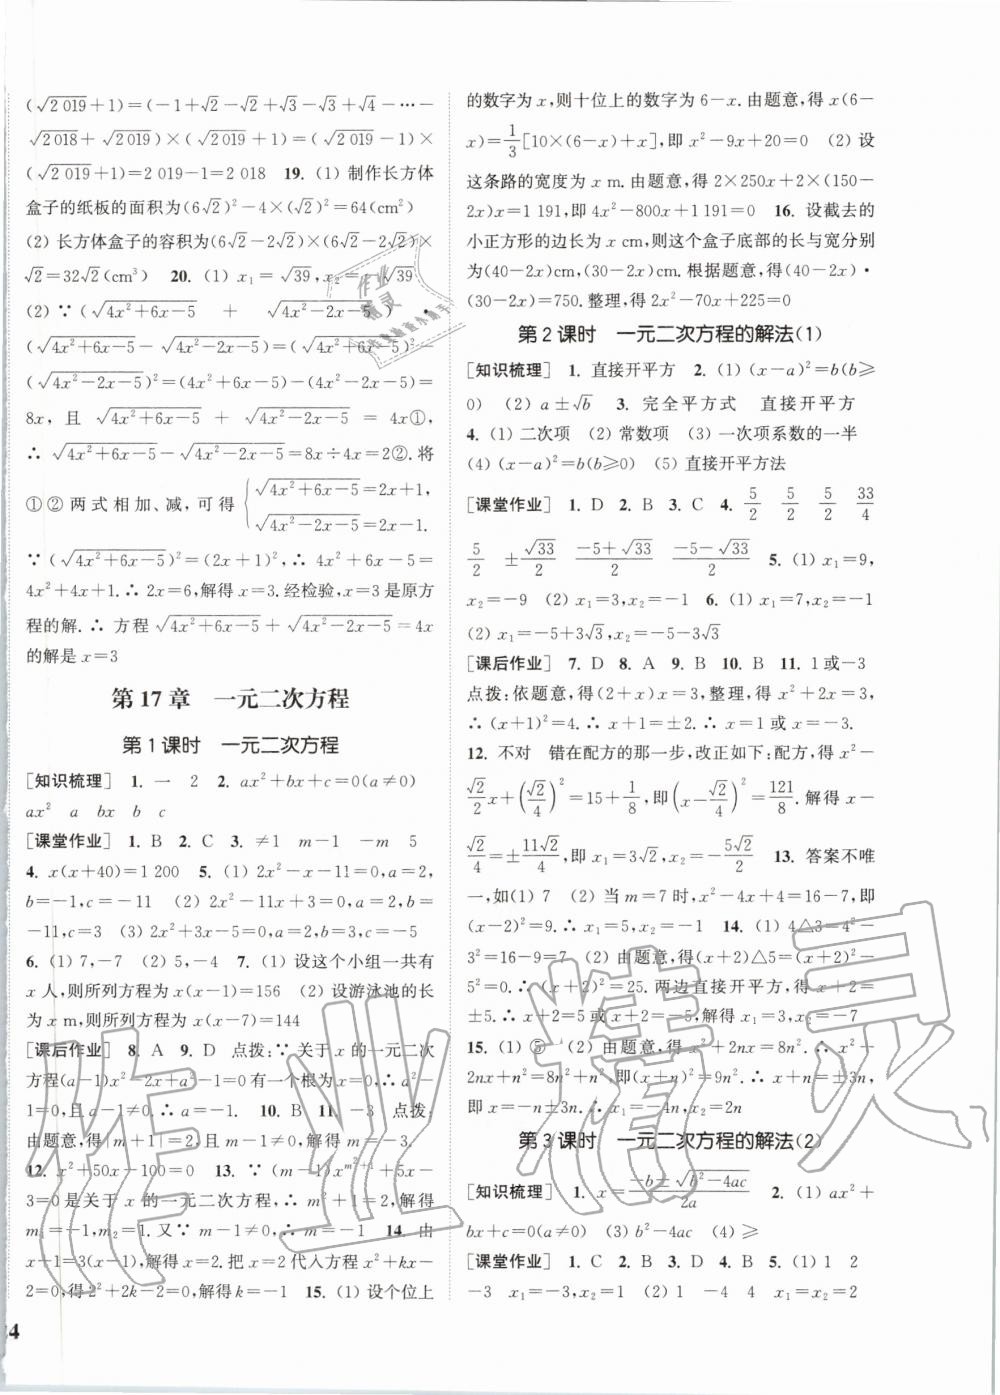 (√2 019+1)=(-1+√2-√2+√3-√3+√4-…-
√2 018+√2 019)×(√2 019+1)=(√2 019-1)×
(√2 019+1)=2 019-1=2 018 19. (1) 制作长方体
盒子的纸板的面积为(6√2)²-4×(√2)²=64(cm²)
(2) 长方体盒子的容积为(6√2-2√2)×(6√2-2√2)×
√2=32√2(cm³) 20. (1) x₁=√39,x₂=-√39
(2) ∵ (√4x²+6x-5-√4x²-2x-5)·
(√4x²+6x-5+√4x²-2x-5)=(√4x²+6x-5)²-
(√4x²-2x-5)²=(4x²+6x-5)-(4x²-2x-5)=
8x, 且 √4x²+6x-5 + √4x²-2x-5 = 4x①,
∴ √4x²+6x-5-√4x²-2x-5=8x÷4x=2②. 将
①②两式相加、减,可得{√4x²+6x-5=2x+1,
√4x²-2x-5=2x-1.
∵ (√4x²+6x-5)²=(2x+1)²,∴ 4x²+6x-5=
4x²+4x+1.∴ 2x=6,解得x=3.经检验,x=3是原方
程的解.∴ 方程√4x²+6x-5+√4x²-2x-5=4x
的解是x=3
第17章 一元二次方程
第1课时 一元二次方程
[知识梳理] 1. 一 2 2. ax²+bx+c=0(a≠0)
ax² a bx b c
[课堂作业] 1. B 2. C 3. ≠1 m-1 -m 5
4. x(x+40)=1 200 5. (1) 2x²-x-11=0,a=2,
b=-1,c=-11 (2) 2x²-11x+3=0,a=2,b=
-11,c=3 (3) 2x²+3x-5=0,a=2,b=3,c=-5
6. (1) 7,-7 (2) 5,-4 7. (1) 设这个小组一共有
x人,则所列方程为x(x-1)=156 (2) 设游泳池的长
为x m,则所列方程为x(x-7)=144
[课后作业] 8. A 9. D 点拨:∵ 关于x的一元二次
方程(a-1)x²-2x+a²-1=0有一个根为x=0,∴ a²-
1=0且a-1≠0.∴ a=-1. 10. B 11. -3 点拨:
由题意,得|m+1|=2且m-1≠0.解得m=-3.
12. x²+50x-100=0 13. ∵ (m-1)x^(m²+1)+5x-
3=0是关于x的一元二次方程,∴ m²+1=2,解得
m₁=-1,m₂=1.又∵ m-1≠0,∴ m=-1 14. 由
x+1=3,解得x=2.把x=2代入方程x²+kx-
2=0,得2²+2k-2=0,解得k=-1 15. (1) 设个位上
的数字为x,则十位上的数字为6-x.由题意,得x(6-
x)=1/3[10×(6-x)+x],即x²-9x+20=0 (2) 设
这条路的宽度为x m.由题意,得2×250x+2×(150-
2x)x=1 191,即4x²-800x+1 191=0 16. 设截去的
小正方形的边长为x cm,则这个盒子底部的长与宽分别
为(40-2x)cm,(30-2x)cm.根据题意,得(40-2x)·
(30-2x)=750.整理,得2x²-70x+225=0
第2课时 一元二次方程的解法(1)
[知识梳理] 1. 直接开平方 2. (1) (x-a)²=b(b≥
0) (2) a±√b 3. 完全平方式 直接开平方
4. (1) 二次项 (2) 常数项 (3) 一次项系数的一半
(4) (x-a)²=b(b≥0) (5) 直接开平方法
[课堂作业] 1. D 2. B 3. C 4. 5/2 5/2 5/2 33/4
5/2 ±√33/2 (-5+√33)/2 (-5-√33)/2 5. (1) x₁=9,
x₂=-9 (2) x₁=3,x₂=-1 6. (1) x₁=7,x₂=-1
(2) x₁=-5+3√3,x₂=-5-3√3
[课后作业] 7. D 8. A 9. B 10. B 11. 1或-3
点拨:依题意,得(2+x)x=3,整理,得x²+2x=3,
∴ (x+1)²=4.∴ x+1=±2.∴ x=1或x=-3.
12. 不对 错在配方的那一步,改正如下:配方,得x²-
√2/2x+(√2/4)²=15+1/8,即(x-√2/4)²=121/8.解得x-
√2/4=±11√2/4,即x₁=3√2,x₂=-5√2/2 13. 答案不唯
一,如(1) 7 (2) 当m=7时,x²-4x+4=16-7,即
(x-2)²=9.∴ x₁=5,x₂=-1 14. (1) 4△3=4²-
3²=16-9=7 (2) 由题意,得(x+2)△5=(x+2)²-
5²=0.∴ (x+2)²=25.两边直接开平方,得x+2=
±5.∴ x+2=5或x+2=-5,解得x₁=3,x₂=-7
15. (1) ⑤ (2) 由题意,得x²+2nx=8n².∴ x²+
2nx+n²=8n²+n²,即(x+n)²=9n².∴ x+n=±3n,
即x=-n±3n.∴ x₁=-4n,x₂=2n
第3课时 一元二次方程的解法(2)
[知识梳理] 1. x=(-b±√b²-4ac)/2a 2. (1) ax²+
bx+c=0(a≠0) (3) b²-4ac (4) ≥
[课堂作业] 1. C 2. B 3. D 4. B 5. (1) 1 2
-3 x₁=-3,x₂=1 (2) 1 -4 4 x₁=x₂=2
作业精灵